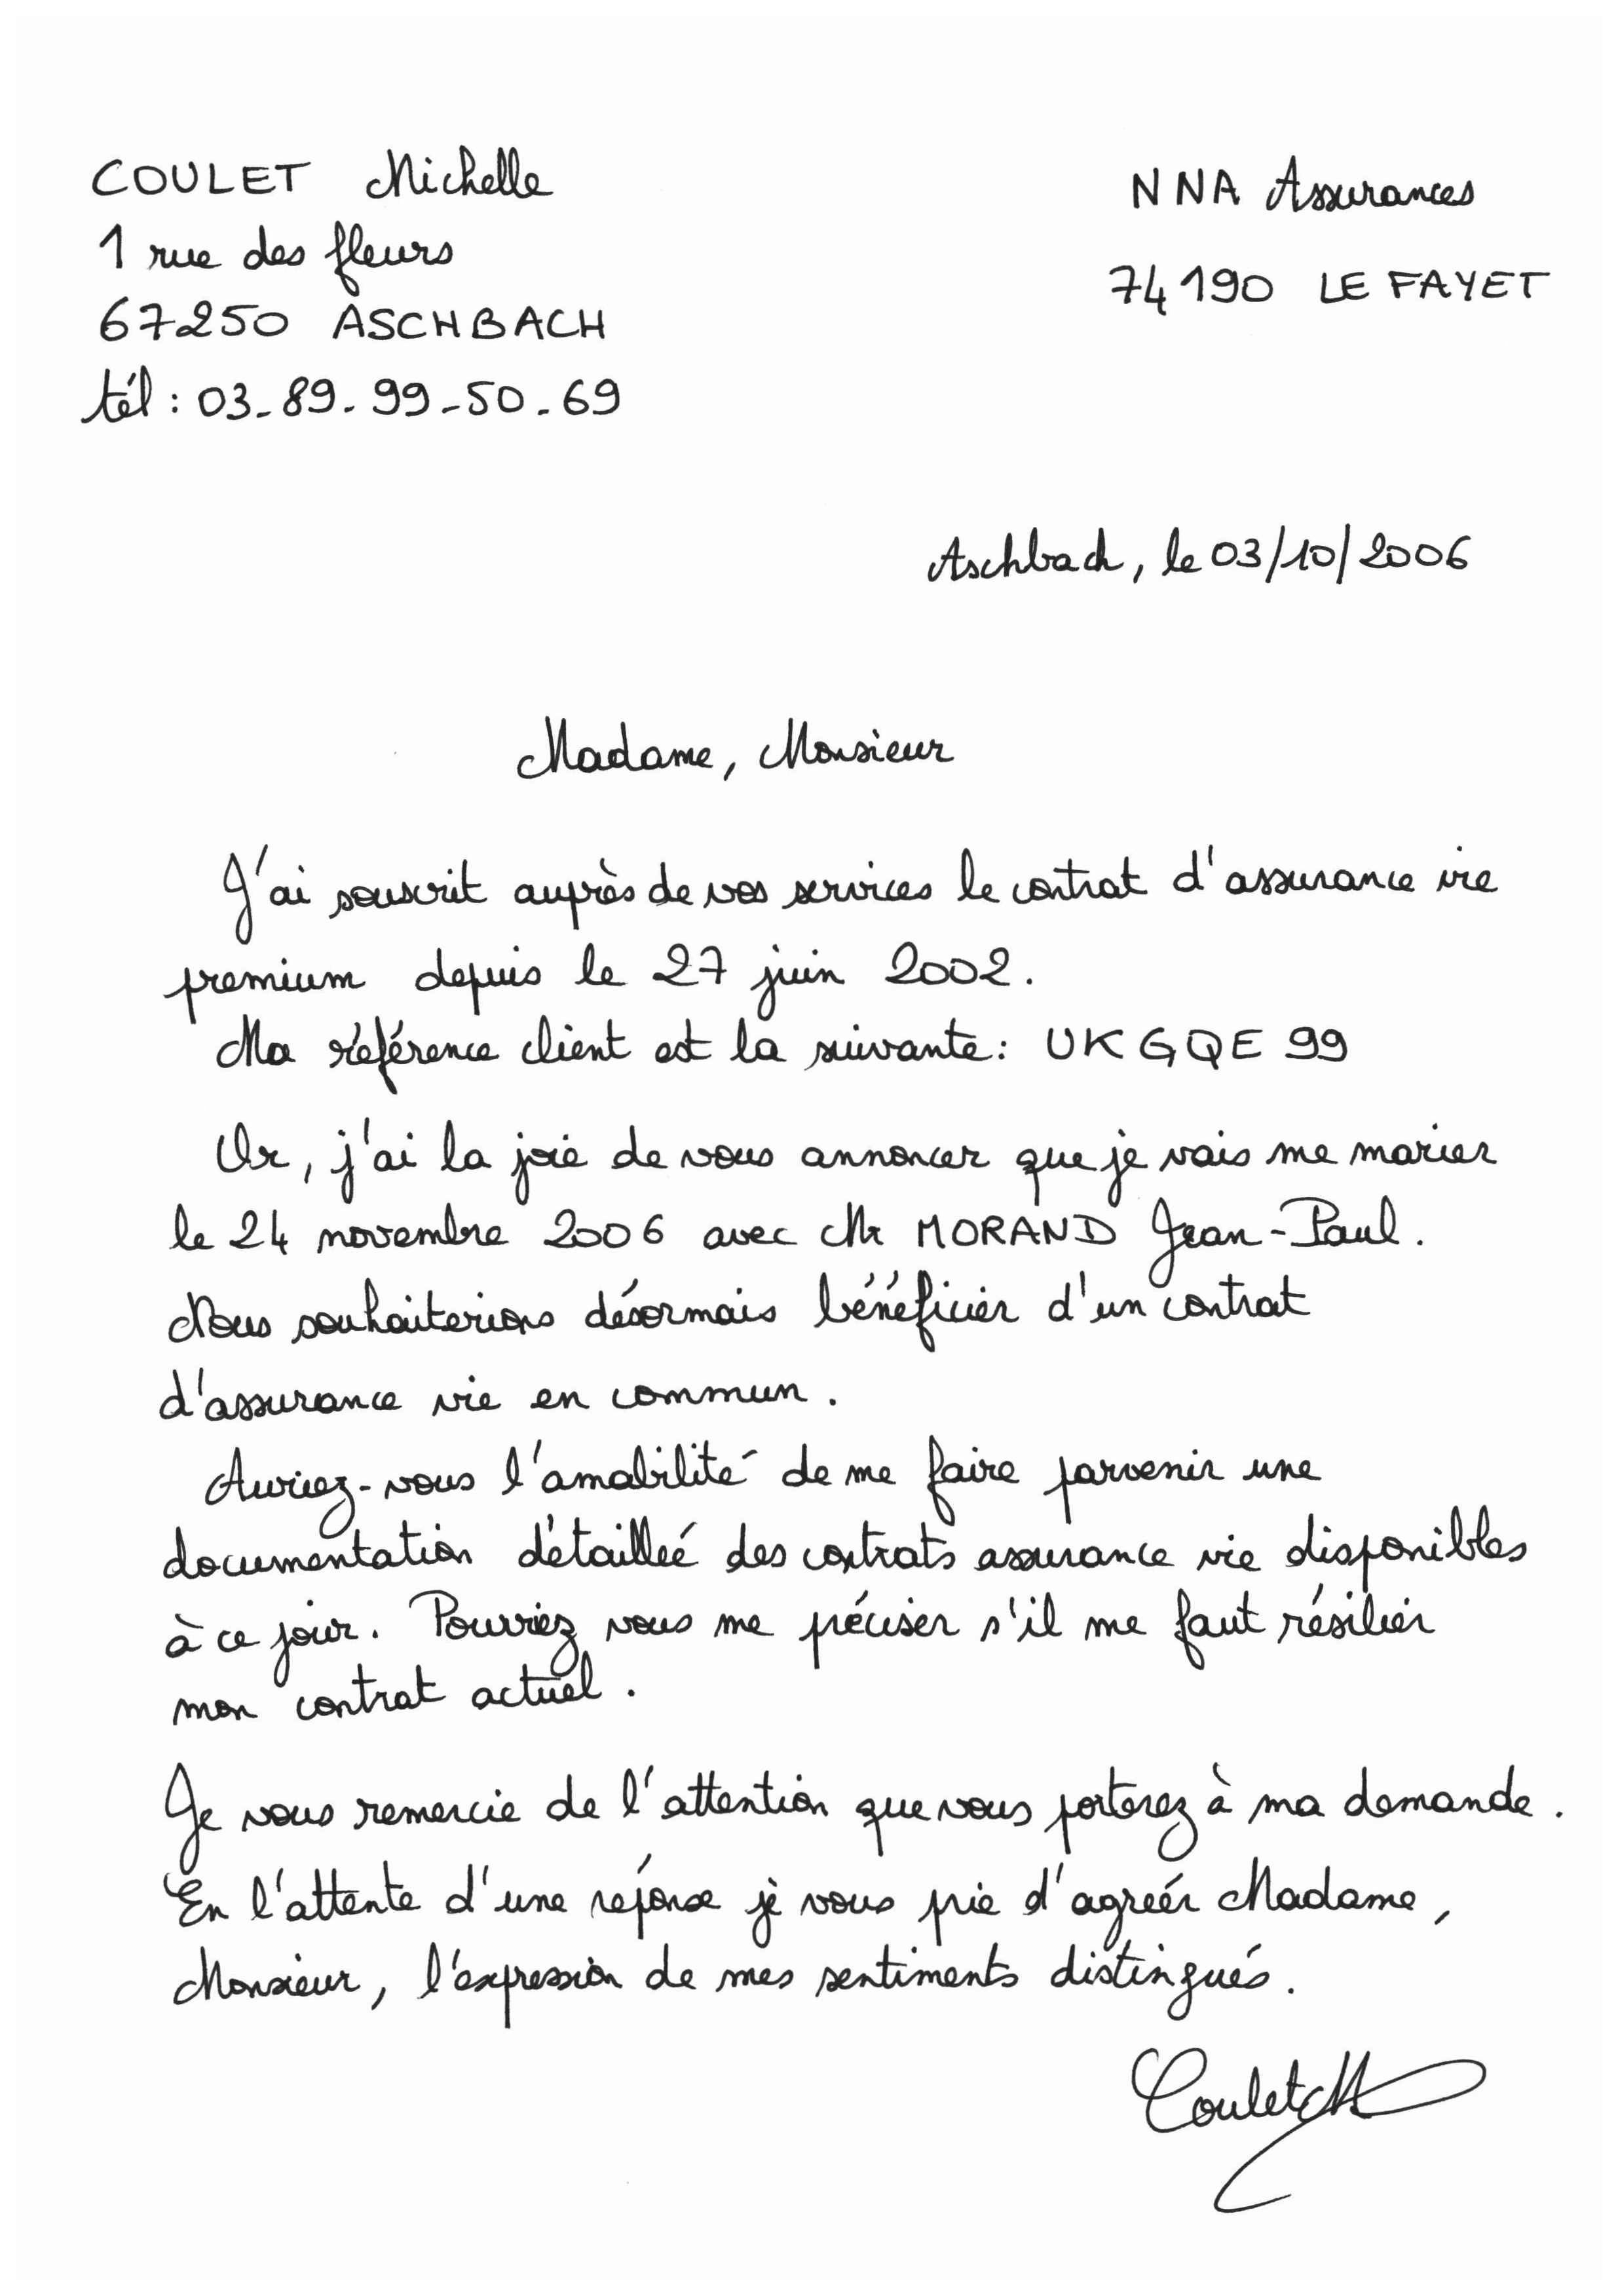 COULET Michelle
1 rue des fleurs
67250 ASCHBACH
tél : 03-89-99-50-69
NNA Assurances
74190 LE FAYET
Aschbach, le 03/10/2006
Madame, Monsieur
J'ai souscrit auprès de vos services le contrat d'assurance vie
premium depuis le 27 juin 2002.
Ma référence client est la suivante : UKGQE 99
Or, j'ai la joie de vous annoncer que je vais me marier
le 24 novembre 2006 avec Mr MORAND Jean-Paul.
Nous souhaiterions désormais bénéficier d'un contrat
d'assurance vie en commun.
Auriez-vous l'amabilité de me faire parvenir une
documentation détaillée des contrats assurance vie disponibles
à ce jour. Pouvriez vous me préciser s'il me faut résilier
mon contrat actuel.
Je vous remercie de l'attention que vous porterez à ma demande.
En l'attente d'une réponse je vous prie d'agréér Madame,
Monsieur, l'expression de mes sentiments distingués.
Coulet M